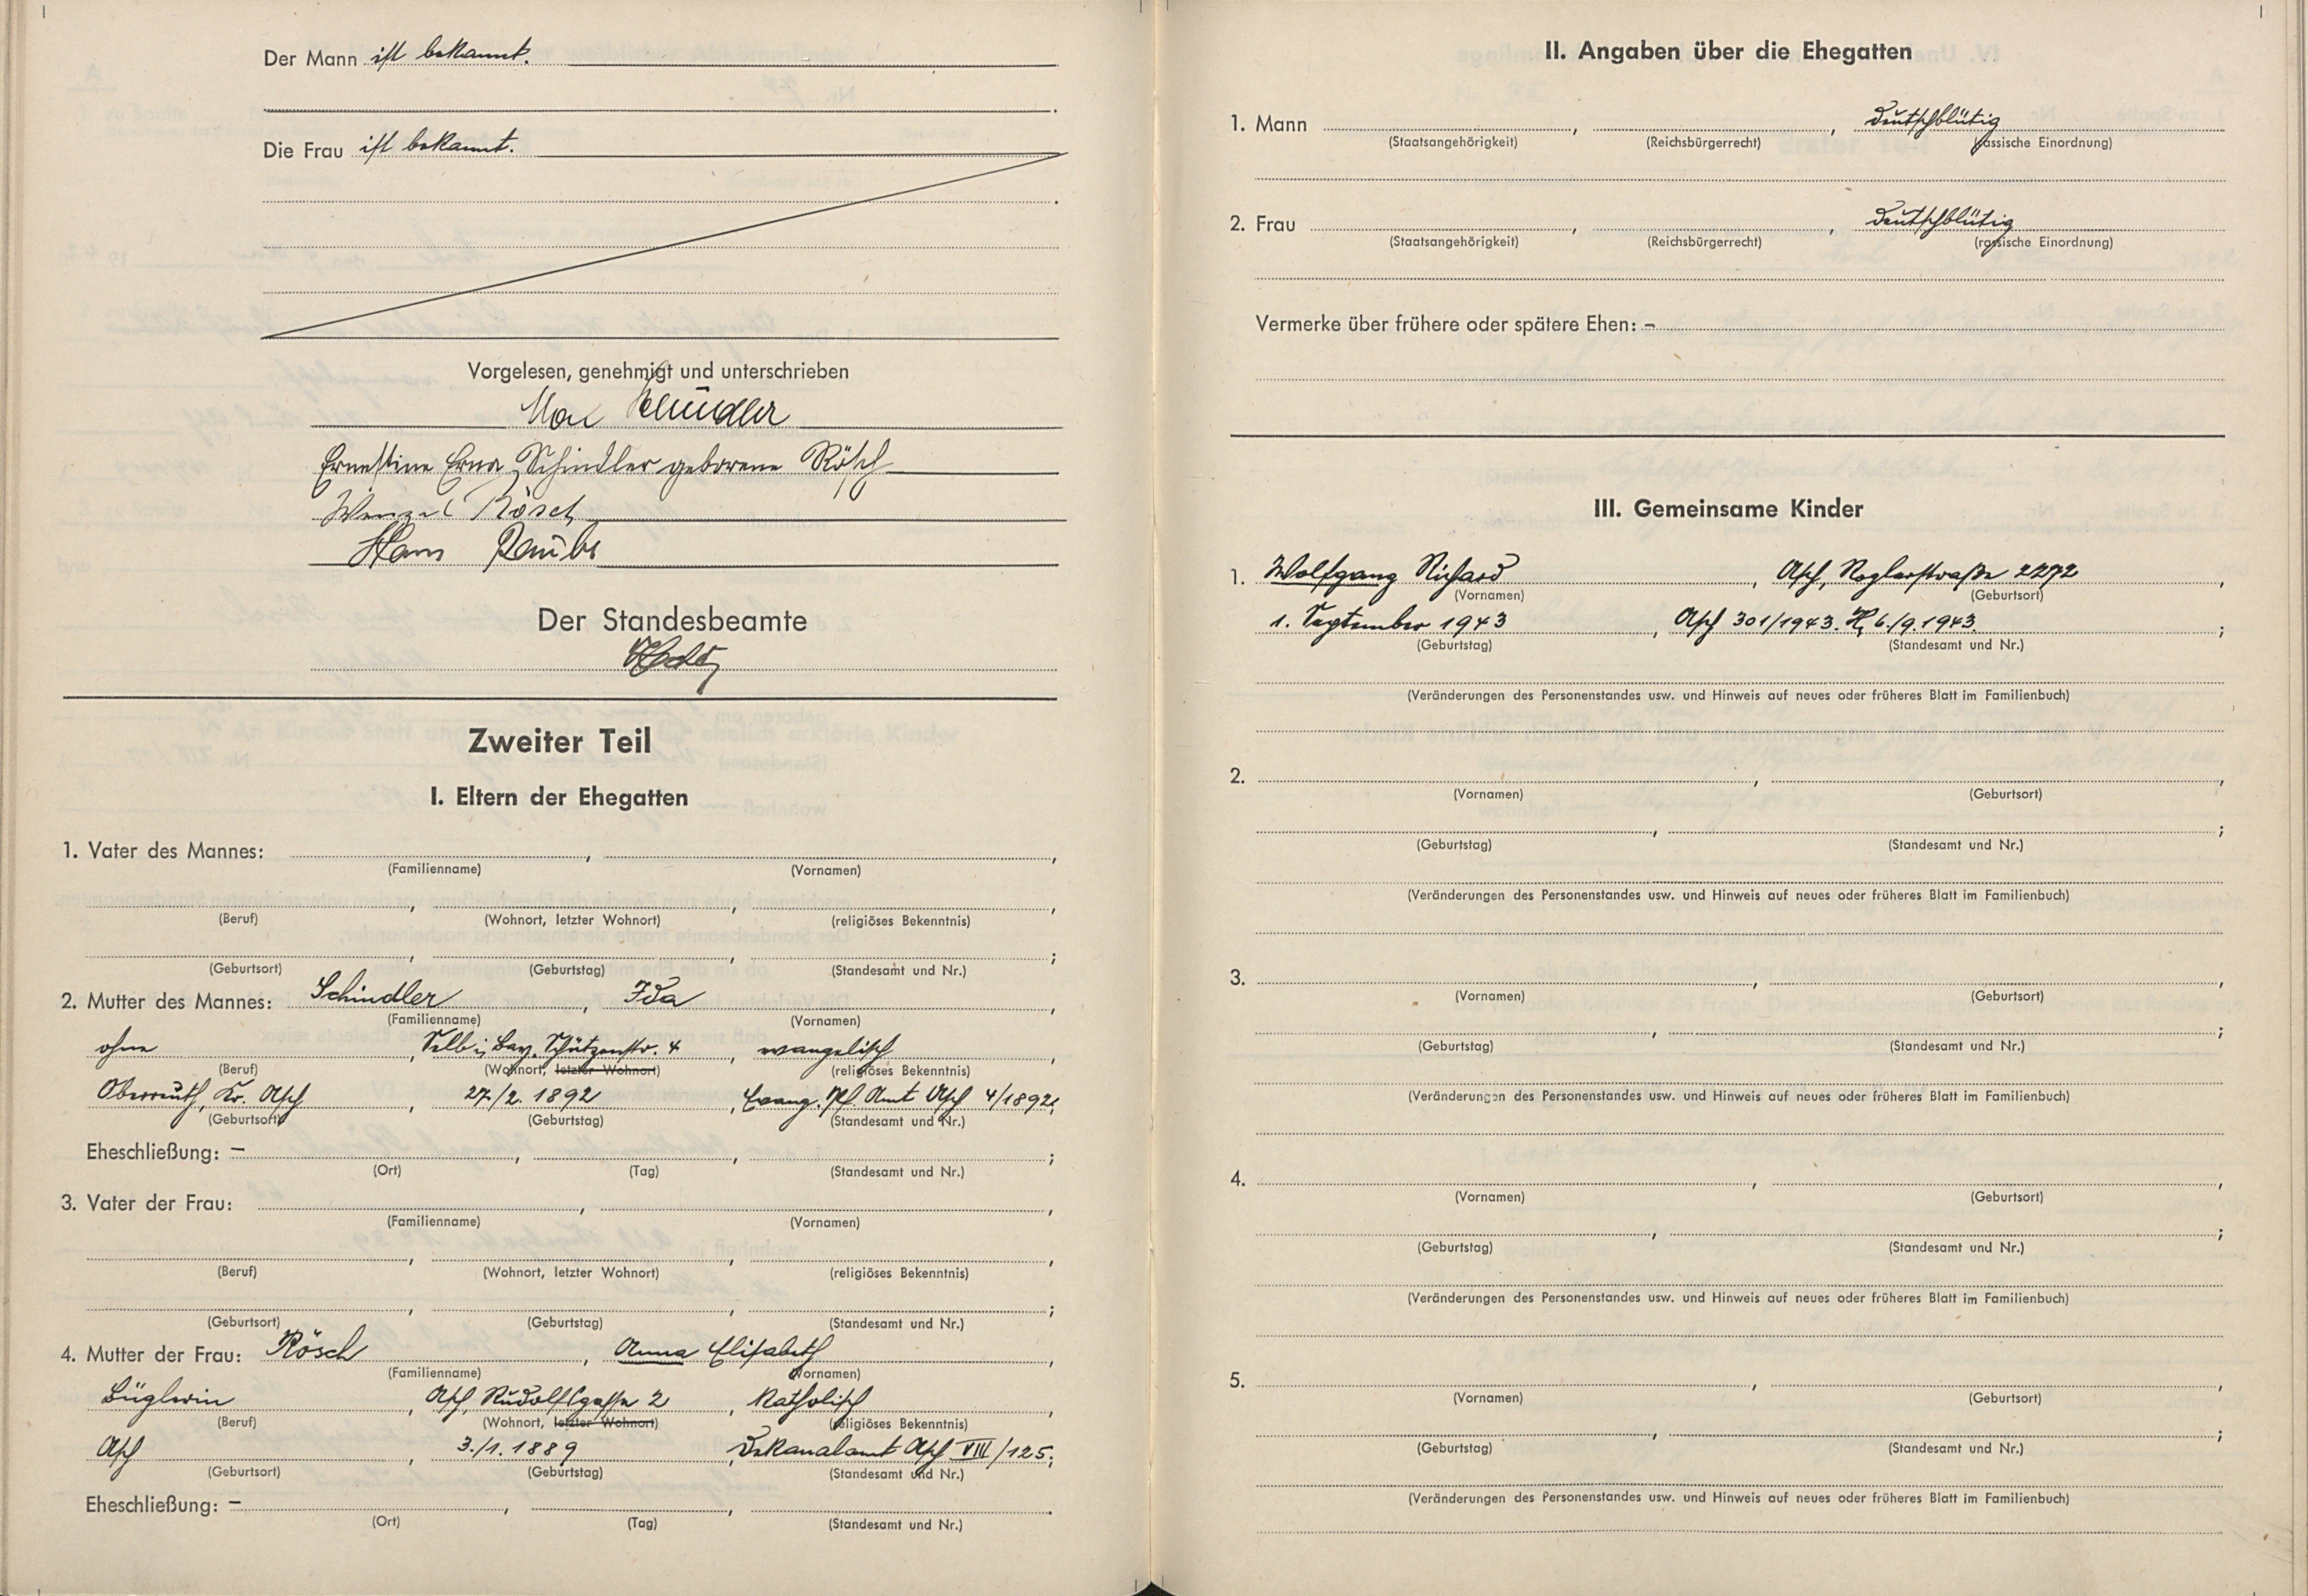 Der Mann ist bekannt.
Die Frau ist bekannt.
Vorgelesen, genehmigt und unterschrieben
Max Schindler
Ernestine Erna Schindler geborene Rösch
Wenzel Rösch
Hans
Der Standesbeamte
Zweiter Teil
I. Eltern der Ehegatten
1. Vater des Mannes: , ,
(Familienname) (Vornamen)
, , ,
(Beruf) (Wohnort, letzter Wohnort) (religiöses Bekenntnis)
, , ;
(Geburtsort) (Geburtstag) (Standesamt und Nr.)
2. Mutter des Mannes: Schindler , Ida ,
(Familienname) (Vornamen)
ohne , Selb i. Bay. Schützenstr. 4 , evangelisch ,
(Beruf) (Wohnort, letzter Wohnort) (religiöses Bekenntnis)
Oberreuth, Kr. Asch , 27./2. 1892 , Evang. Pf. Amt Asch 4/1892;
(Geburtsort) (Geburtstag) (Standesamt und Nr.)
Eheschließung: – , , ;
(Ort) (Tag) (Standesamt und Nr.)
3. Vater der Frau: , ,
(Familienname) (Vornamen)
, , ,
(Beruf) (Wohnort, letzter Wohnort) (religiöses Bekenntnis)
, , ;
(Geburtsort) (Geburtstag) (Standesamt und Nr.)
4. Mutter der Frau: Rösch , Anna Elisabeth ,
(Familienname) (Vornamen)
Büglerin , Asch, Rudolfsgasse 2 , katholisch ,
(Beruf) (Wohnort, letzter Wohnort) (religiöses Bekenntnis)
Asch , 3./1. 1889 , Dekanalamt Asch VIII/125;
(Geburtsort) (Geburtstag) (Standesamt und Nr.)
Eheschließung: – , , .
(Ort) (Tag) (Standesamt und Nr.)
II. Angaben über die Ehegatten
1. Mann , , deutschblütig
(Staatsangehörigkeit) (Reichsbürgerrecht) (rassische Einordnung)
2. Frau , , deutschblütig
(Staatsangehörigkeit) (Reichsbürgerrecht) (rassische Einordnung)
Vermerke über frühere oder spätere Ehen: –
III. Gemeinsame Kinder
1. Wolfgang Richard , Asch, Roglerstraße 2272 ,
(Vornamen) (Geburtsort)
1. September 1943 , Asch 301/1943. 6./9. 1943. ;
(Geburtstag) (Standesamt und Nr.)
(Veränderungen des Personenstandes usw. und Hinweis auf neues oder früheres Blatt im Familienbuch)
2. , ,
(Vornamen) (Geburtsort)
, ;
(Geburtstag) (Standesamt und Nr.)
(Veränderungen des Personenstandes usw. und Hinweis auf neues oder früheres Blatt im Familienbuch)
3. , ,
(Vornamen) (Geburtsort)
, ;
(Geburtstag) (Standesamt und Nr.)
(Veränderungen des Personenstandes usw. und Hinweis auf neues oder früheres Blatt im Familienbuch)
4. , ,
(Vornamen) (Geburtsort)
, ;
(Geburtstag) (Standesamt und Nr.)
(Veränderungen des Personenstandes usw. und Hinweis auf neues oder früheres Blatt im Familienbuch)
5. , ,
(Vornamen) (Geburtsort)
, ;
(Geburtstag) (Standesamt und Nr.)
(Veränderungen des Personenstandes usw. und Hinweis auf neues oder früheres Blatt im Familienbuch)